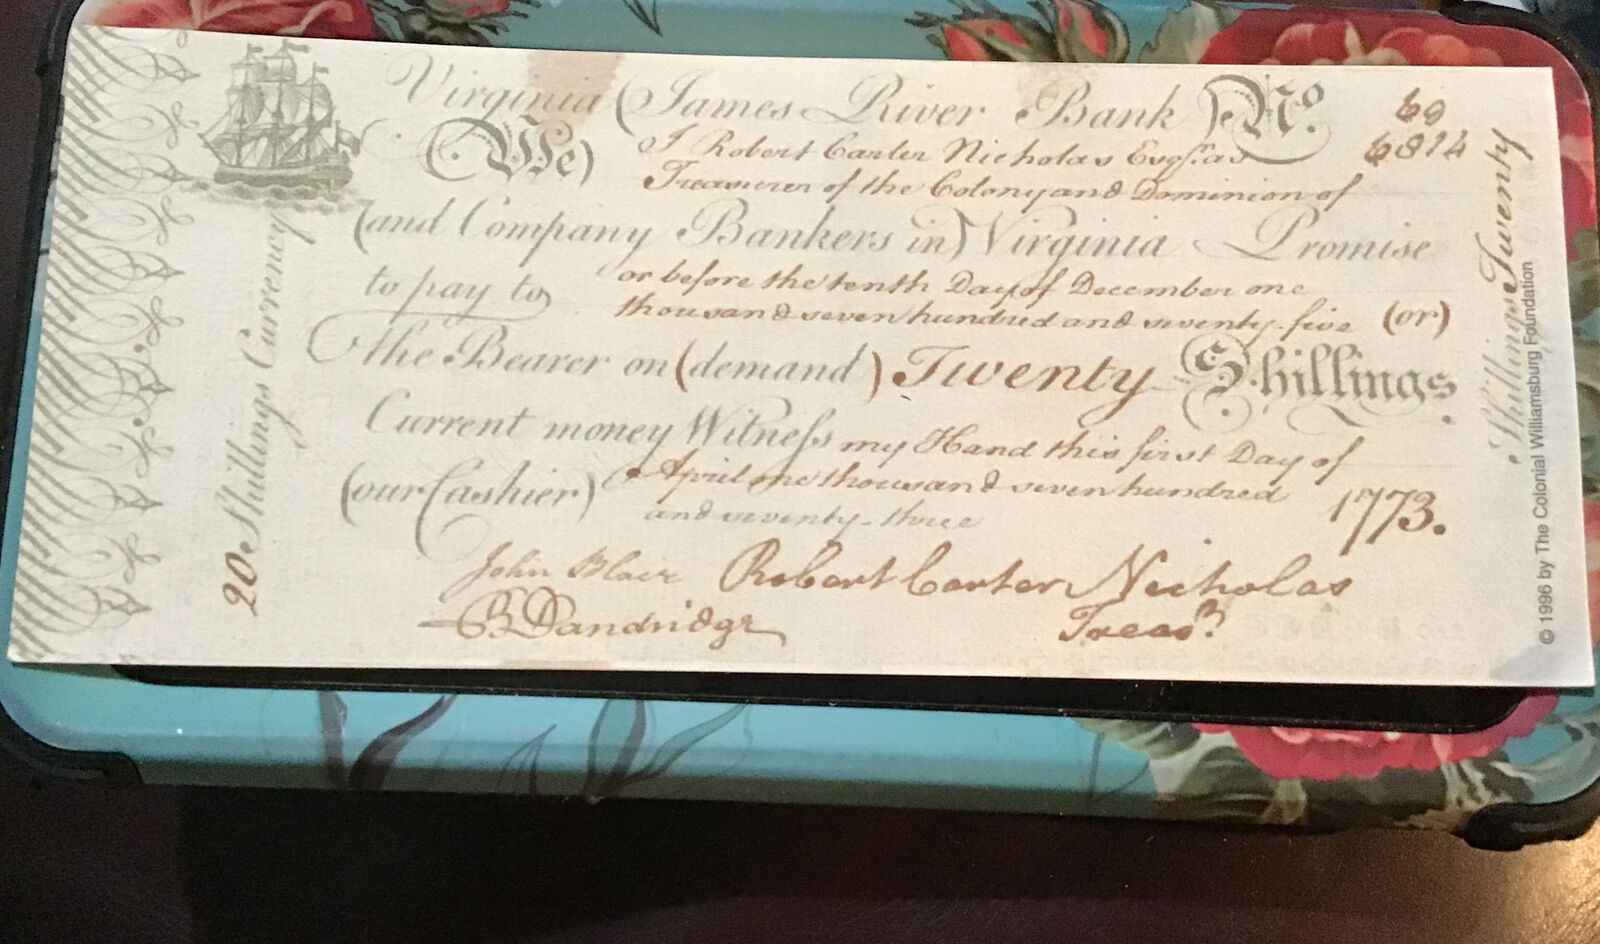 Virginia (James River Bank) No. 60
6814
(We) I Robert Carter Nicholas Esqr. as
Treasurer of the Colony and Dominion of
(and Company Bankers in) Virginia Promise
to pay to or before the tenth Day of December one
thousand seven hundred and seventy-five (or)
the Bearer on (demand) Twenty Shillings.
Current money Witneſs my Hand this first Day of
(our Cashier) April one thousand seven hundred
and seventy-three 1773.
John Blair Robert Carter Nicholas
B Dandridge Treasr.
20 Shillings Currency
Shillings Twenty
© 1996 by The Colonial Williamsburg Foundation